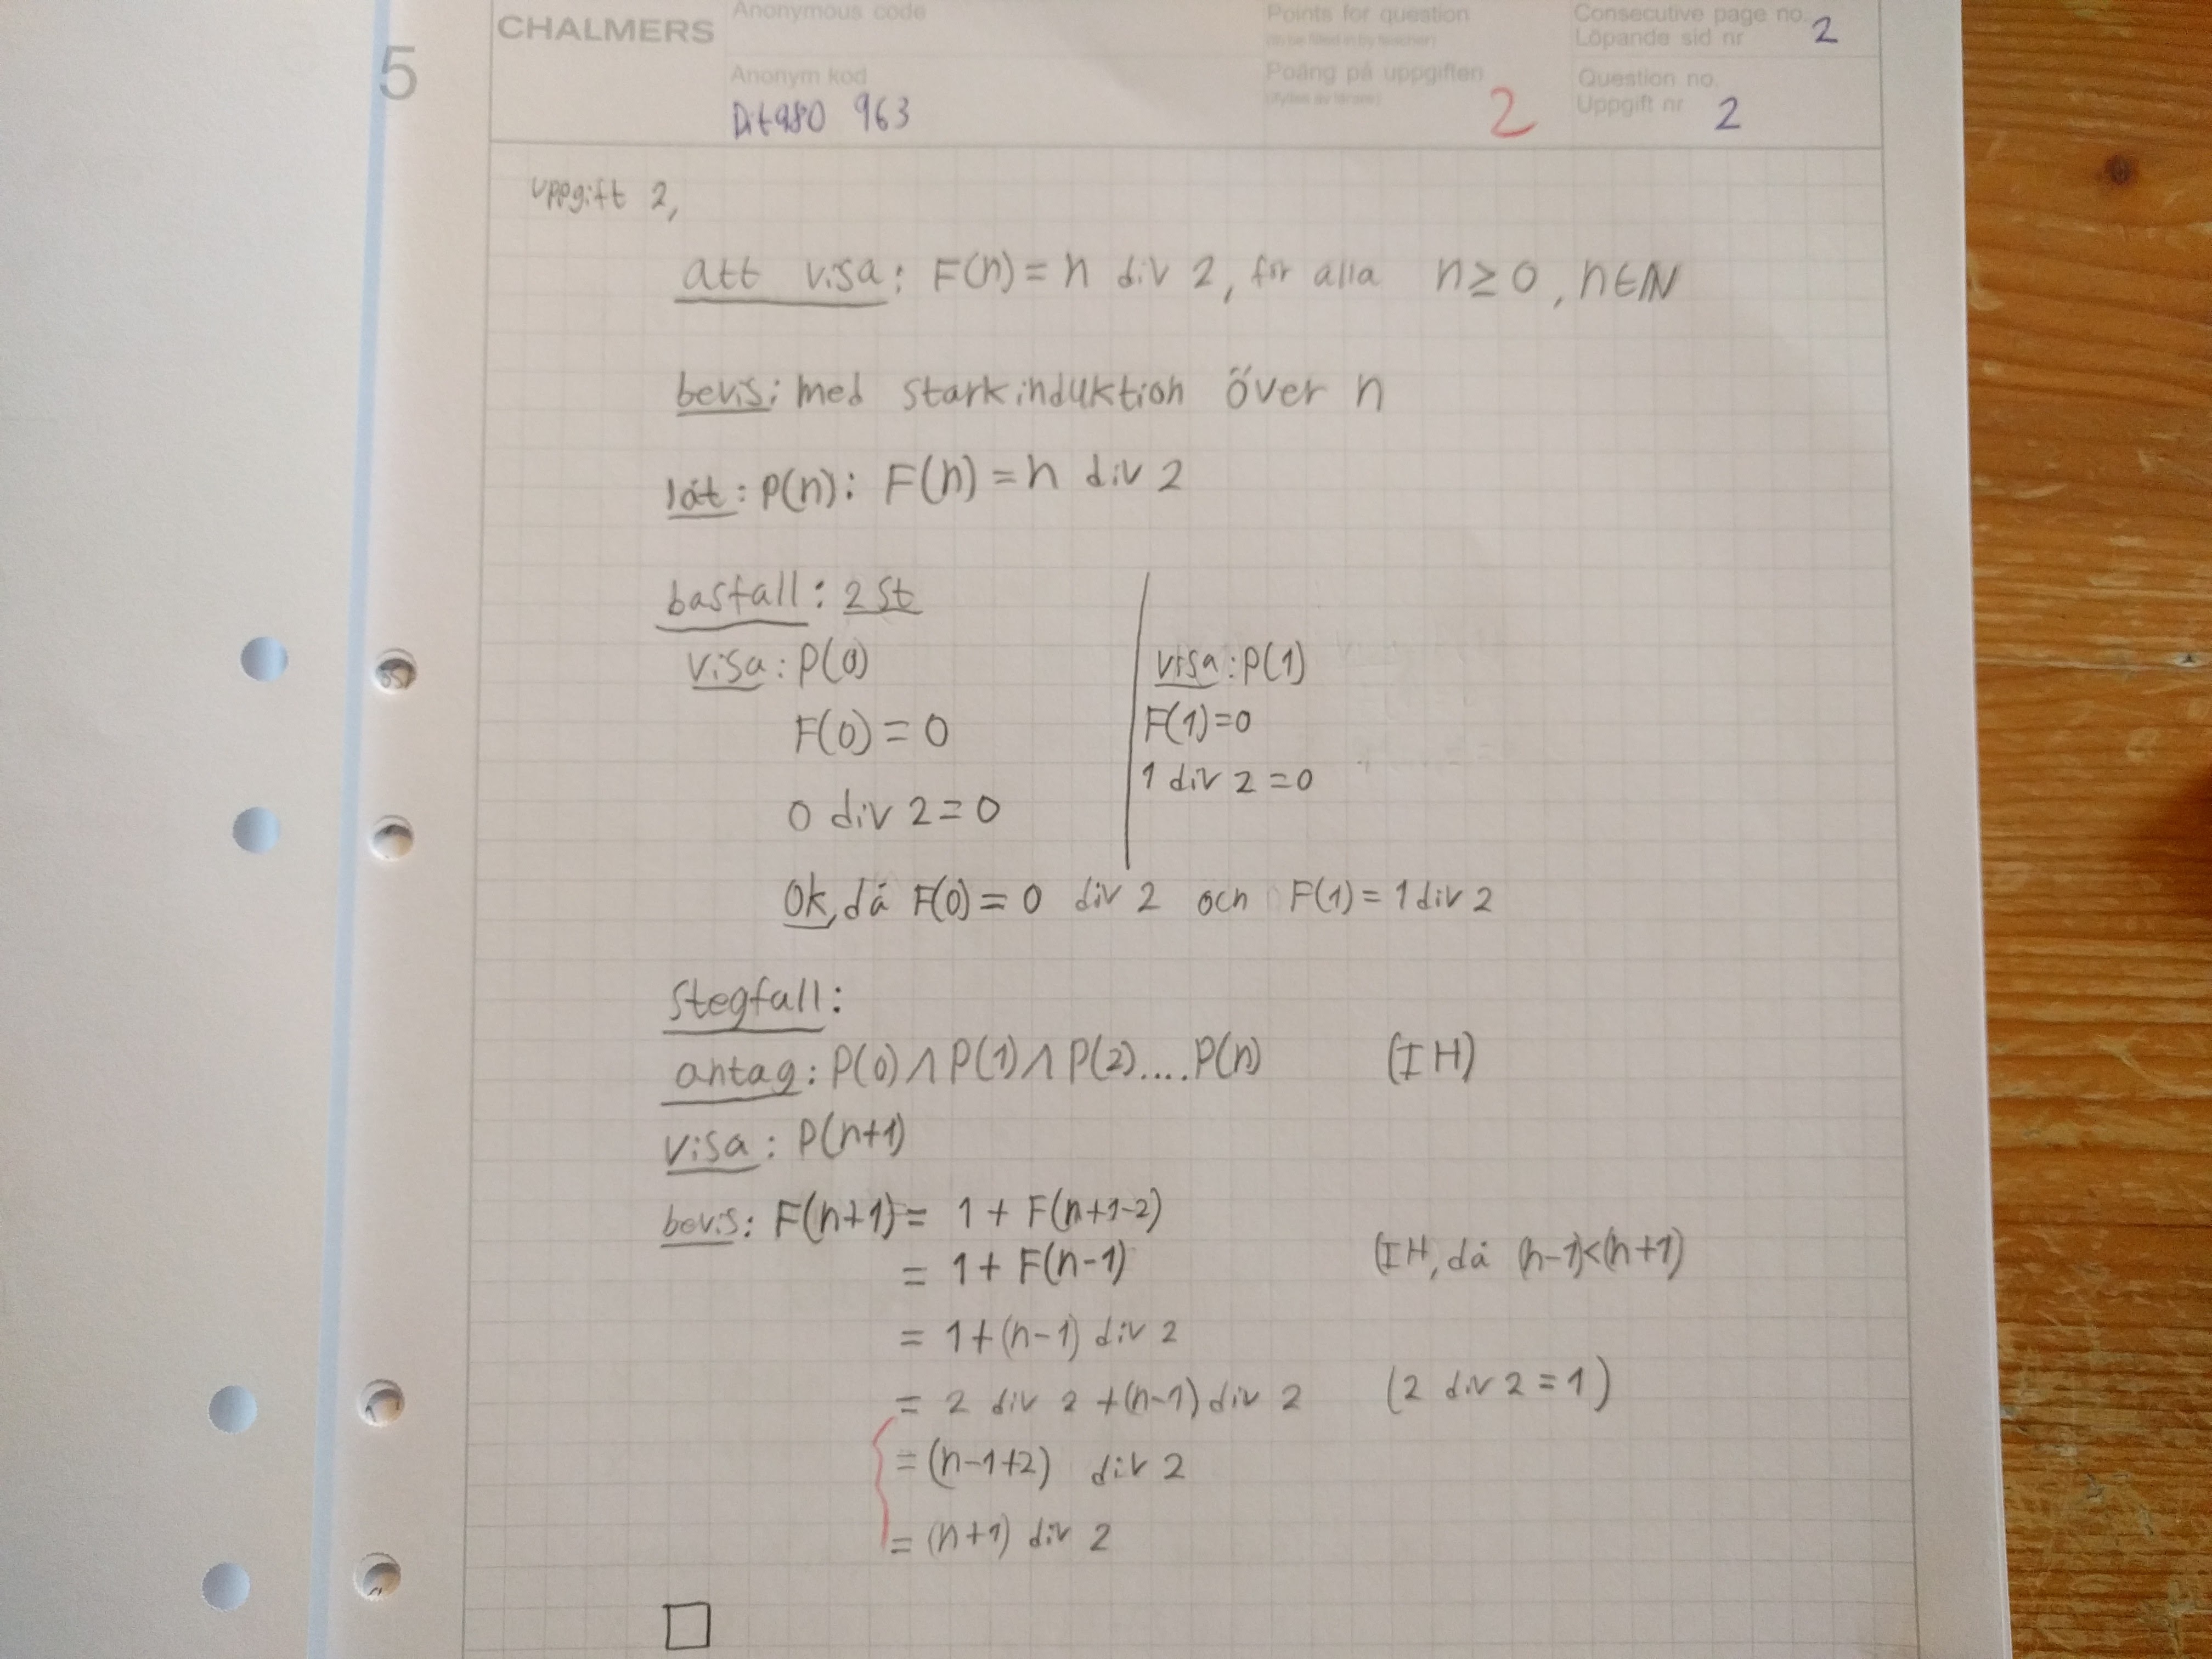 5
CHALMERS
Anonymous code
Anonym kod
Dit980 963
Points for question
(to be filled in by teacher)
Poäng på uppgiften
(ifylles av lärare)
2
Consecutive page no.
Löpande sid nr
2
Question no.
Uppgift nr
2
uppgift 2,
att visa: F(n) = n div 2, för alla n ≥ 0, n∈N
bevis: med stark induktion över n
låt: P(n): F(n) = n div 2
basfall: 2 st
visa: P(0)
F(0) = 0
0 div 2 = 0
visa: P(1)
F(1) = 0
1 div 2 = 0
Ok, då F(0) = 0 div 2 och F(1) = 1 div 2
Stegfall:
antag: P(0) ∧ P(1) ∧ P(2)....P(n) (IH)
visa: P(n+1)
bevis: F(n+1) = 1 + F(n+1-2)
= 1 + F(n-1) (IH, då (n-1)<(n+1)
= 1+(n-1) div 2
= 2 div 2 +(n-1) div 2 (2 div 2 = 1)
= (n-1+2) div 2
= (n+1) div 2